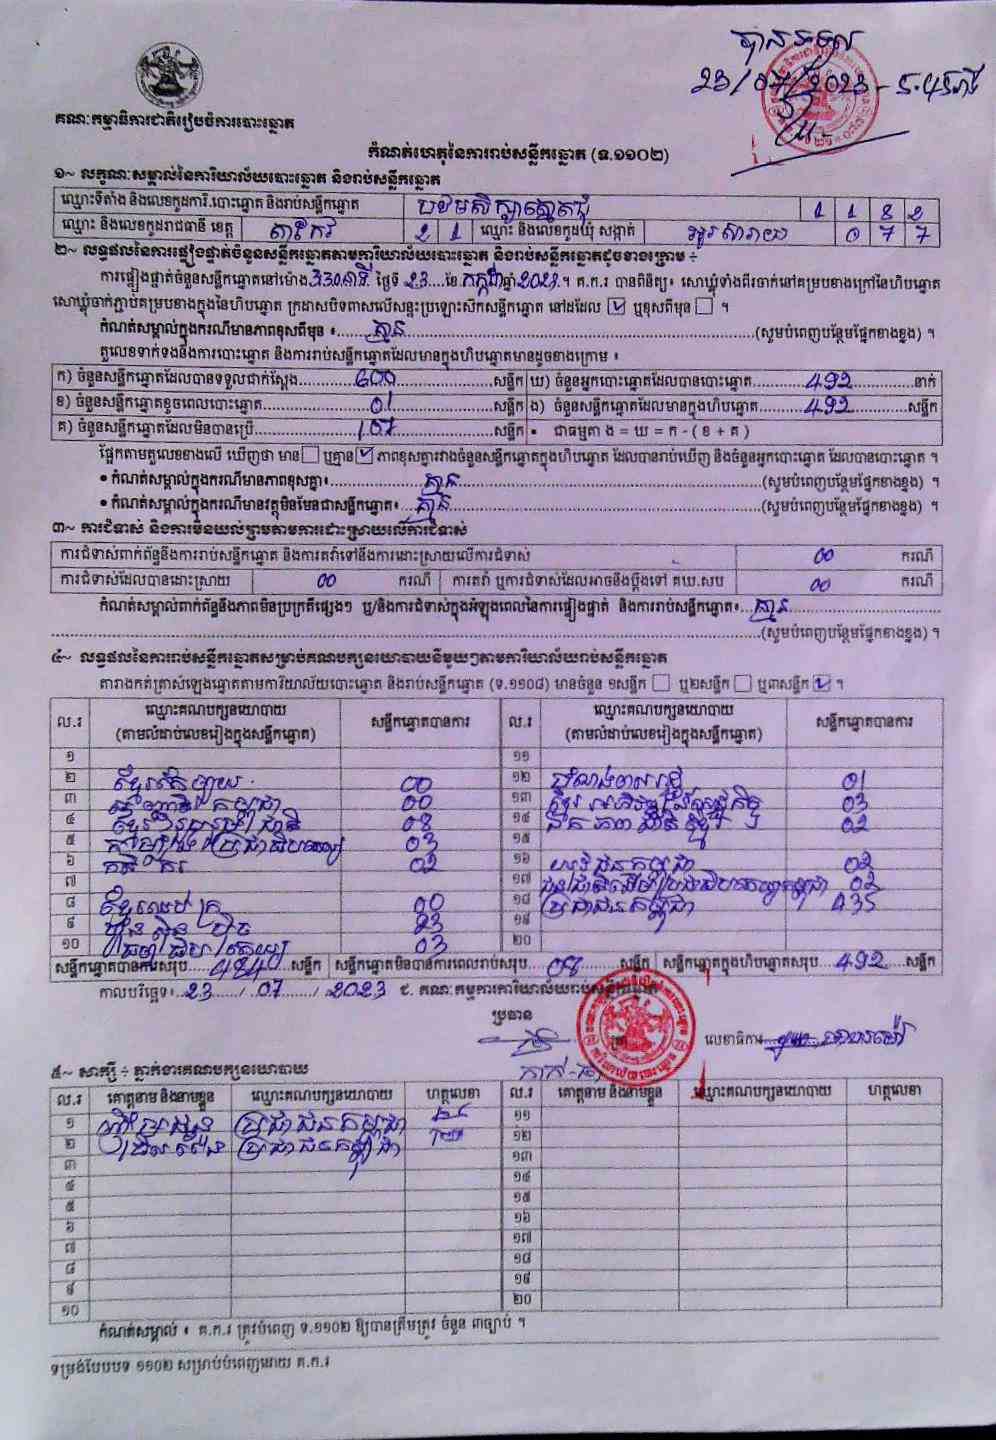 បានទទួល
23/07/2023
គណៈកម្មាធិការជាតិរៀបចំការបោះឆ្នោត
កំណត់ហេតុនៃការរាប់សន្លឹកឆ្នោត (ទ.១១០២)
១~ លក្ខណៈសម្គាល់នៃការិយាល័យបោះឆ្នោត និងរាប់សន្លឹកឆ្នោត
ឈ្មោះទីតាំង និងលេខកូដការិ.បោះឆ្នោត និងរាប់សន្លឹកឆ្នោត បឋមសិក្សា 1 1 8 2
ឈ្មោះ និងលេខកូដរាជធានី ខេត្ត តាកែវ 2 1 ឈ្មោះ និងលេខកូដឃុំ សង្កាត់ អូរសារាយ 0 7 7
២~ លទ្ធផលនៃការផ្ទៀងផ្ទាត់ចំនួនសន្លឹកឆ្នោតតាមការិយាល័យបោះឆ្នោត និងរាប់សន្លឹកឆ្នោតដូចខាងក្រោម ÷
ការផ្ទៀងផ្ទាត់ចំនួនសន្លឹកឆ្នោតនៅម៉ោង 3:30នាទី ថ្ងៃទី 23 ខែ កក្កដា ឆ្នាំ 2023 ។ គ.ក.រ បានពិនិត្យ៖ សោឃ្លុំទាំងពីរចាក់នៅគម្របខាងក្រៅនៃហិបឆ្នោត
សោឃ្លុំចាក់ភ្ជាប់គម្របខាងក្នុងនៃហិបឆ្នោត ក្រដាសបិទពាសលើសន្ទះប្រឡោះសិកសន្លឹកឆ្នោត នៅដដែល ☑ ឬខុសពីមុន ☐ ។
កំណត់សម្គាល់ក្នុងករណីមានភាពខុសពីមុន ៖ គ្មាន (សូមបំពេញបន្ថែមផ្នែកខាងខ្នង) ។
តួលេខទាក់ទងនឹងការបោះឆ្នោត និងការរាប់សន្លឹកឆ្នោតដែលមានក្នុងហិបឆ្នោតមានដូចខាងក្រោម ៖
ក) ចំនួនសន្លឹកឆ្នោតដែលបានទទួលជាក់ស្តែង 600 សន្លឹក ឃ) ចំនួនអ្នកបោះឆ្នោតដែលបានបោះឆ្នោត 492 នាក់
ខ) ចំនួនសន្លឹកឆ្នោតខូចពេលបោះឆ្នោត 01 សន្លឹក ង) ចំនួនសន្លឹកឆ្នោតដែលមានក្នុងហិបឆ្នោត 492 សន្លឹក
គ) ចំនួនសន្លឹកឆ្នោតដែលមិនបានប្រើ 107 សន្លឹក • ជាធម្មតា ង = ឃ = ក - ( ខ + គ )
ផ្អែកតាមតួលេខខាងលើ ឃើញថា មាន ☐ ឬគ្មាន ☑ ភាពខុសគ្នារវាងចំនួនសន្លឹកឆ្នោតក្នុងហិបឆ្នោត ដែលបានរាប់ឃើញ និងចំនួនអ្នកបោះឆ្នោត ដែលបានបោះឆ្នោត ។
• កំណត់សម្គាល់ក្នុងករណីមានភាពខុសគ្នា៖ គ្មាន (សូមបំពេញបន្ថែមផ្នែកខាងខ្នង) ។
• កំណត់សម្គាល់ក្នុងករណីមានវត្ថុមិនមែនជាសន្លឹកឆ្នោត៖ គ្មាន (សូមបំពេញបន្ថែមផ្នែកខាងខ្នង) ។
៣~ ការជំទាស់ និងការមិនយល់ព្រមតាមការដោះស្រាយលើការជំទាស់
ការជំទាស់ពាក់ព័ន្ធនឹងការរាប់សន្លឹកឆ្នោត និងការតវ៉ាទៅនឹងការដោះស្រាយលើការជំទាស់ 00 ករណី
ការជំទាស់ដែលបានដោះស្រាយ 00 ករណី ការតវ៉ា ឬការជំទាស់ដែលអាចនឹងប្តឹងទៅ គឃ.សប 00 ករណី
កំណត់សម្គាល់ពាក់ព័ន្ធនឹងភាពមិនប្រក្រតីផ្សេងៗ ឬ/និងការជំទាស់ក្នុងអំឡុងពេលនៃការផ្ទៀងផ្ទាត់ និងការរាប់សន្លឹកឆ្នោត៖ គ្មាន
(សូមបំពេញបន្ថែមផ្នែកខាងខ្នង) ។
៤~ លទ្ធផលនៃការរាប់សន្លឹកឆ្នោតសម្រាប់គណបក្សនយោបាយនីមួយៗតាមការិយាល័យរាប់សន្លឹកឆ្នោត
តារាងកត់ត្រាសំឡេងឆ្នោតតាមការិយាល័យបោះឆ្នោត និងរាប់សន្លឹកឆ្នោត (ទ.១១០៨) មានចំនួន ១សន្លឹក ☐ ឬ២សន្លឹក ☐ ឬ៣សន្លឹក ☑ ។
ល.រ ឈ្មោះគណបក្សនយោបាយ (តាមលំដាប់លេខរៀងក្នុងសន្លឹកឆ្នោត) សន្លឹកឆ្នោតបានការ ល.រ ឈ្មោះគណបក្សនយោបាយ (តាមលំដាប់លេខរៀងក្នុងសន្លឹកឆ្នោត) សន្លឹកឆ្នោតបានការ
១ ១១
២ 00 ១២ 01
៣ កម្ពុជា 00 ១៣ ខ្មែរ 03
៤ ខ្មែរ ជាតិ ១៤ ជាតិ ខ្មែរ 02
៥ ប្រជាធិបតេយ្យ 03 ១៥
៦ កសិករ 02 ១៦ យុវជនកម្ពុជា 02
៧ ១៧ ជនជាតិដើមប្រជាធិបតេយ្យកម្ពុជា
៨ 00 ១៨ ប្រជាជនកម្ពុជា 435
៩ ហ៊្វុនស៊ិនប៉ិច 23 ១៩
១០ 03 ២០
សន្លឹកឆ្នោតបានការសរុប 484 សន្លឹក សន្លឹកឆ្នោតមិនបានការពេលរាប់សរុប 08 សន្លឹក សន្លឹកឆ្នោតក្នុងហិបឆ្នោតសរុប 492 សន្លឹក
កាលបរិច្ឆេទ៖ 23 / 07 / 2023 ជ. គណៈកម្មការការិយាល័យរាប់សន្លឹកឆ្នោត
ប្រធាន
លេខាធិការ
៥~ សាក្សី ÷ ភ្នាក់ងារគណបក្សនយោបាយ
ល.រ គោត្តនាម និងនាមខ្លួន ឈ្មោះគណបក្សនយោបាយ ហត្ថលេខា ល.រ គោត្តនាម និងនាមខ្លួន ឈ្មោះគណបក្សនយោបាយ ហត្ថលេខា
១ ប្រជាជនកម្ពុជា ១១
២ ប្រជាជនកម្ពុជា ១២
៣ ១៣
៤ ១៤
៥ ១៥
៦ ១៦
៧ ១៧
៨ ១៨
៩ ១៩
១០ ២០
កំណត់សម្គាល់ ៖ គ.ក.រ ត្រូវបំពេញ ទ.១១០២ ឱ្យបានត្រឹមត្រូវ ចំនួន ៣ច្បាប់ ។
ទម្រង់បែបបទ ១១០២ សម្រាប់បំពេញដោយ គ.ក.រ